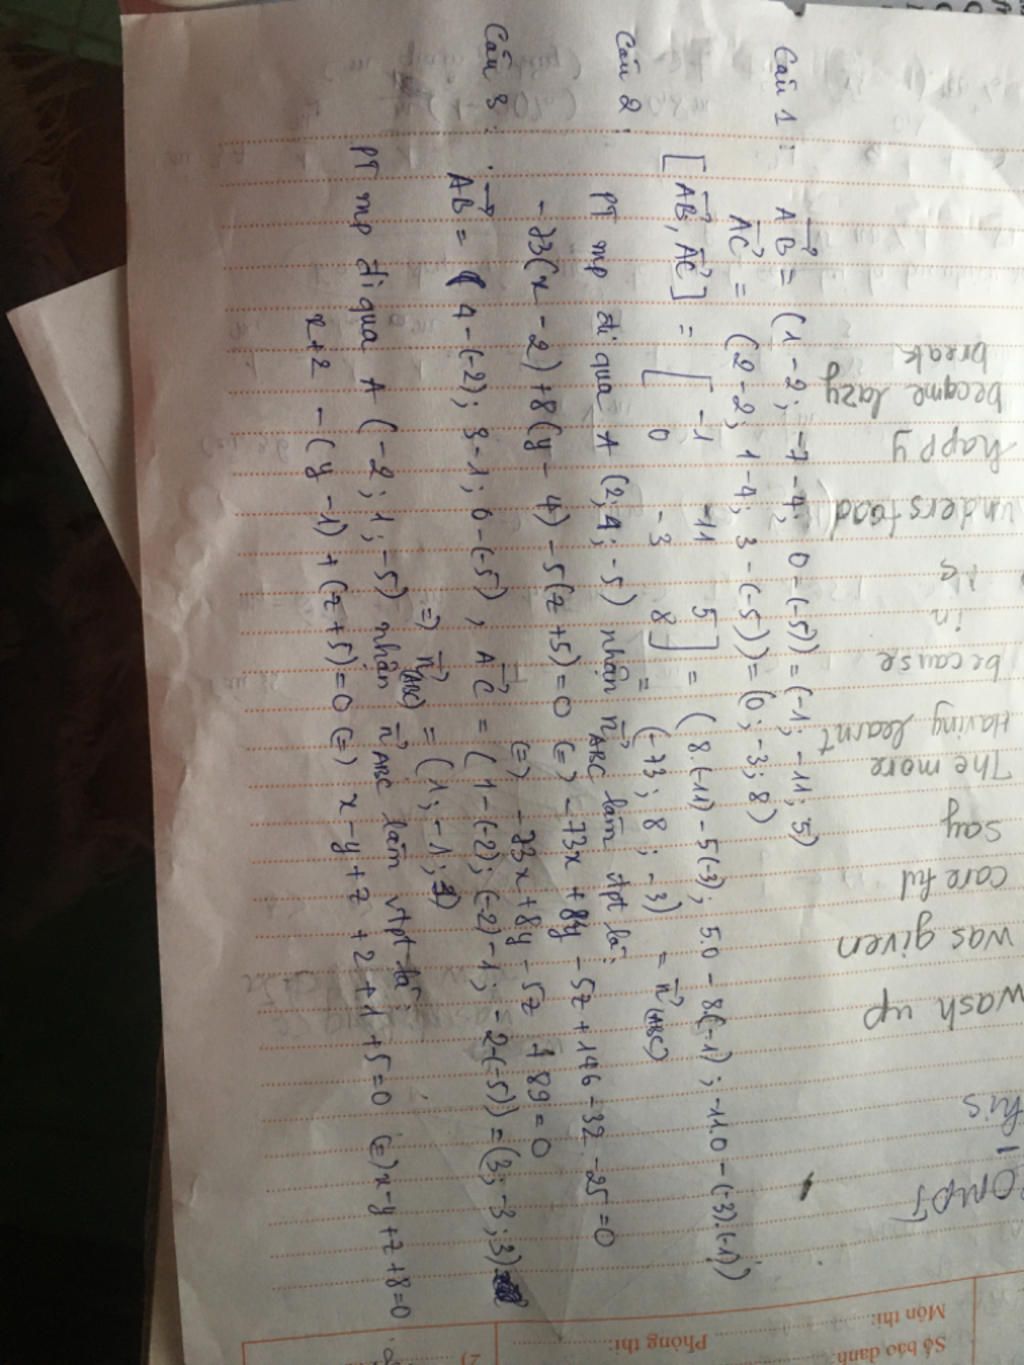 Câu 1 : AB = (1 - 2; -7 - 4; 0 - (-5)) = (-1; -11; 5)
AC = (2 - 2; 1 - 4; 3 - (-5)) = (0; -3; 8)
[AB, AC] = [ -1 -11 5 ] = (8.(-11) - 5(-3); 5.0 - 8.(-1); -11.0 - (-3).(-1))
0 -3 8 ] = (-73; 8; -3) = n(ABC)
Câu 2 :
PT mp đi qua A (2; 4; -5) nhận nABC làm vtpt là:
-73(x - 2) + 8(y - 4) - 5(z + 5) = 0 (=) -73x + 8y - 5z + 146 - 32 - 25 = 0
(=) -73x + 8y - 5z + 89 = 0
Câu 3 :
AB = (4 - (-2); 3 - 1; 0 - (-5)), AC = (1 - (-2); (-2) - 1; -2 - (-5)) = (3; -3; 3)
=) n(ABC) = (1; -1; 1)
PT mp đi qua A (-2; 1; -5) nhận nABC làm vtpt là:
x + 2 - (y - 1) + (z + 5) = 0 (=) x - y + z + 2 + 1 + 5 = 0 (=) x - y + z + 8 = 0
break
became lazy
happy
understood
in
because
Having learnt
The more
say
careful
was given
wash up
his
Số báo danh:
Môn thi:
Phòng thi:
2)